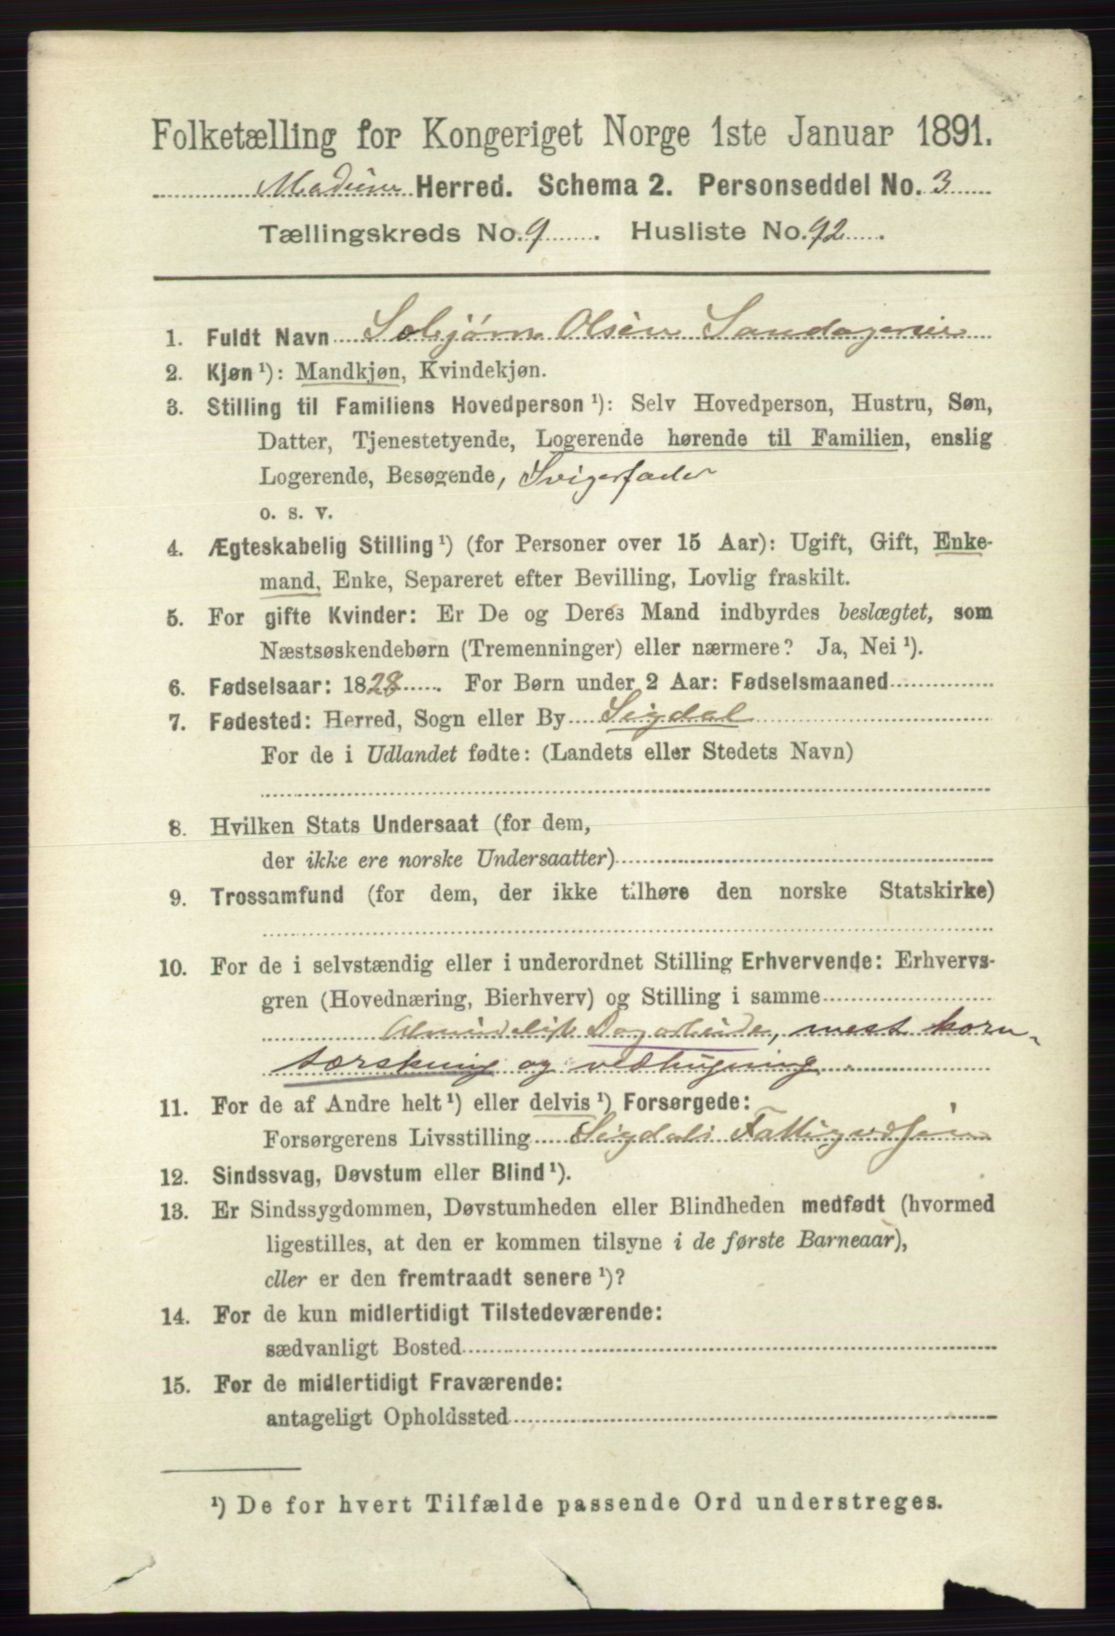 Folketælling for Kongeriget Norge 1ste Januar 1891.
Modum Herred. Schema 2. Personseddel No. 3
Tællingskreds No. 9. Husliste No. 92.
1. Fuldt Navn Olsen
2. Kjøn ¹): Mandkjøn, Kvindekjøn.
3. Stilling til Familiens Hovedperson ¹): Selv Hovedperson, Hustru, Søn,
Datter, Tjenestetyende, Logerende hørende til Familien, enslig
Logerende, Besøgende, Svigerfader
o. s. v.
4. Ægteskabelig Stilling ¹) (for Personer over 15 Aar): Ugift, Gift, Enke-
mand, Enke, Separeret efter Bevilling, Lovlig fraskilt.
5. For gifte Kvinder: Er De og Deres Mand indbyrdes beslægtet, som
Næstsøskendebørn (Tremenninger) eller nærmere? Ja, Nei ¹).
6. Fødselsaar: 1828. For Børn under 2 Aar: Fødselsmaaned
7. Fødested: Herred, Sogn eller By Sigdal
For de i Udlandet fødte: (Landets eller Stedets Navn)
8. Hvilken Stats Undersaat (for dem,
der ikke ere norske Undersaatter)
9. Trossamfund (for dem, der ikke tilhøre den norske Statskirke)
10. For de i selvstændig eller i underordnet Stilling Erhvervende: Erhvervs-
gren (Hovednæring, Bierhverv) og Stilling i samme
Almindeligt Dagarbeide, mest korn-
tærskning og vedhugning
11. For de af Andre helt ¹) eller delvis ¹) Forsørgede:
Forsørgerens Livsstilling Sigdals
12. Sindssvag, Døvstum eller Blind ¹).
13. Er Sindssygdommen, Døvstumheden eller Blindheden medfødt (hvormed
ligestilles, at den er kommen tilsyne i de første Barneaar),
eller er den fremtraadt senere ¹)?
14. For de kun midlertidigt Tilstedeværende:
sædvanligt Bosted
15. For de midlertidigt Fraværende:
antageligt Opholdssted
¹) De for hvert Tilfælde passende Ord understreges.